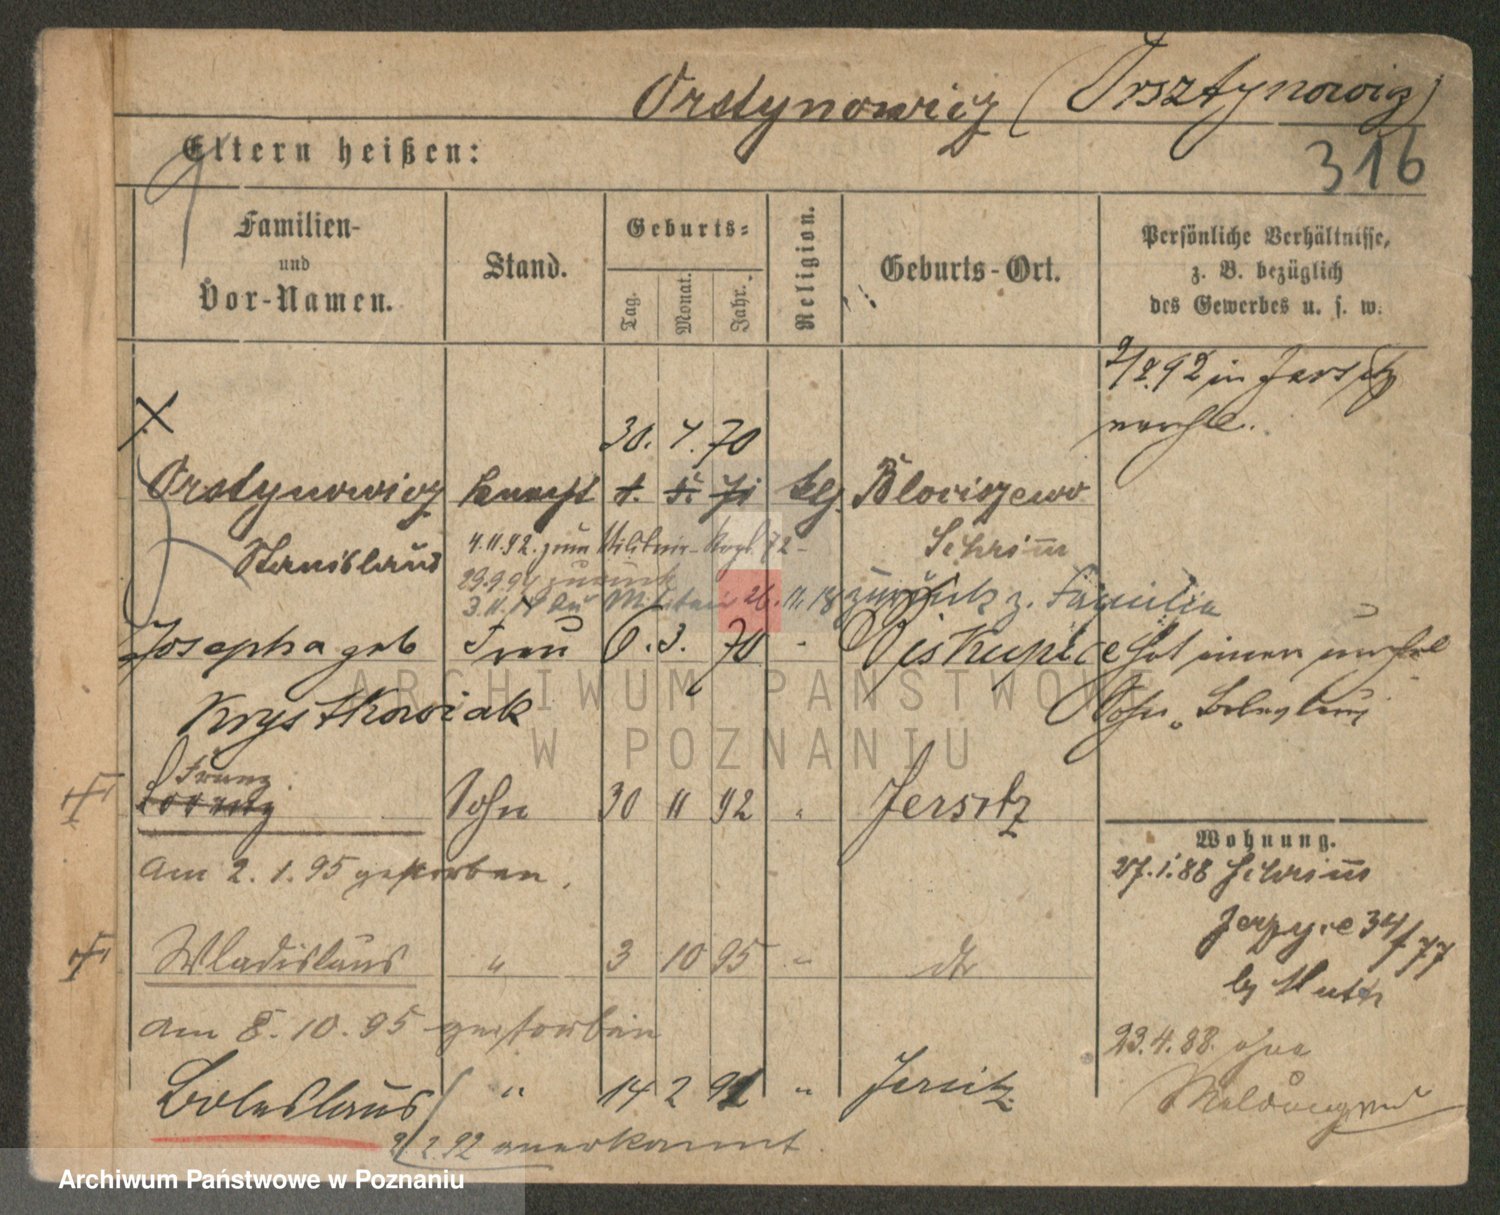 Orstynowicz (Orsztynowicz)
316
Eltern heißen:
Familien- und Vor-Namen.
Stand.
Geburts=
Tag. Monat. Jahr.
Religion.
Geburts-Ort.
Persönliche Verhältnisse,
z. B. bezüglich
des Gewerbes u. s. w.
92 in Jersitz
30. 70
Orstynowicz Knecht 1. 5. 71 klg. Blociszewo
Stanislaus 4.11.92. zum Militair- 72-
Schrimm
29.9.94 zurück
3.11.14 zu Militair 26.11.18 zurück z. Familie
Josepha geb Frau 6. 3. 70 - Biskupice hat einen
Krystkowiak Sohn „Boleslaus
Franz
Sohn 30 11 92 " Jersitz
am 2.1.95 gestorben.
Wohnung.
27.1.88 Schrimm
34/77
Wladislaus " 3 10 95 " dto
by Muth
am 8.10.95 gestorben
23.4.88. ohne
Meldung
Boleslaus " 14 2 91 " Jersitz
2.92 anerkannt.
ARCHIWUM PAŃSTWOWE
W POZNANIU
Archiwum Państwowe w Poznaniu